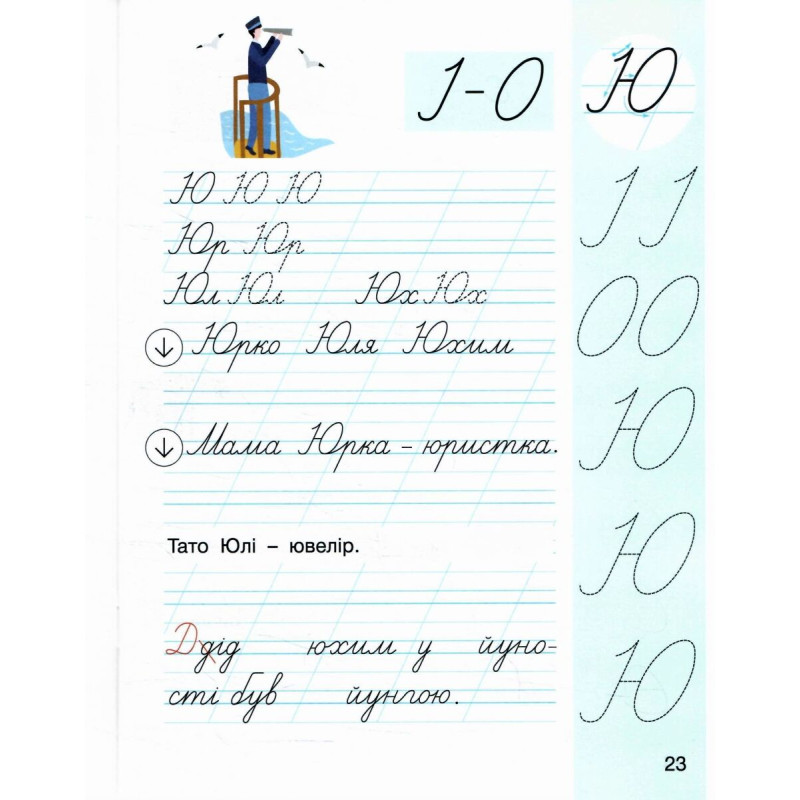 І-О Ю
Ю Ю Ю
І І
Юр Юр
Юл Юл Юх Юх
О О
Юрко Юля Юхим
Ю
Мама Юрка – юристка.
Тато Юлі – ювелір.
Ю
Ддід юхим у йуно-
сті був йунгою.
Ю
23